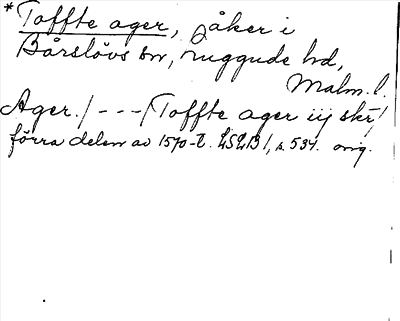 *Toffte ager, åker i
Bårslövs sn, Luggude hd,
Malm. l.
Ager. / - - - / Toffte ager iij skr /
förra delen av 1570-t. LSLB 1, s. 534. orig.